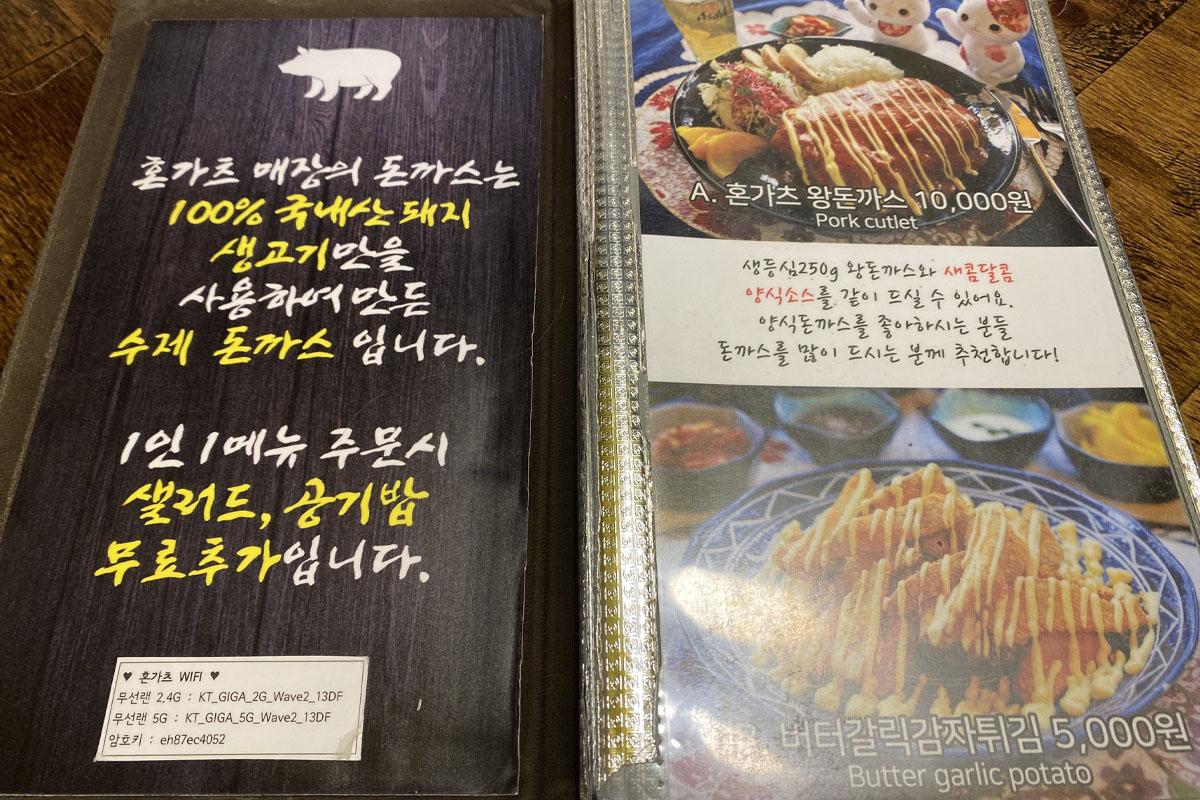 혼가츠 매장의 돈까스는
100% 국내산 돼지
생고기만을
사용하여 만든
수제 돈까스 입니다.
1인 1메뉴 주문시
샐러드, 공기밥
무료추가입니다.
♥ 혼가츠 WIFI ♥
무선랜 2.4G : KT_GIGA_2G_Wave2_13DF
무선랜 5G : KT_GIGA_5G_Wave2_13DF
암호키 : eh87ec4052
A. 혼가츠 왕돈까스 10,000원
Pork cutlet
생등심250g 왕돈까스와 새콤달콤
양식소스를 같이 드실 수 있어요.
양식돈까스를 좋아하시는 분들
돈까스를 많이 드시는 분께 추천합니다!
버터갈릭감자튀김 5,000원
Butter garlic potato